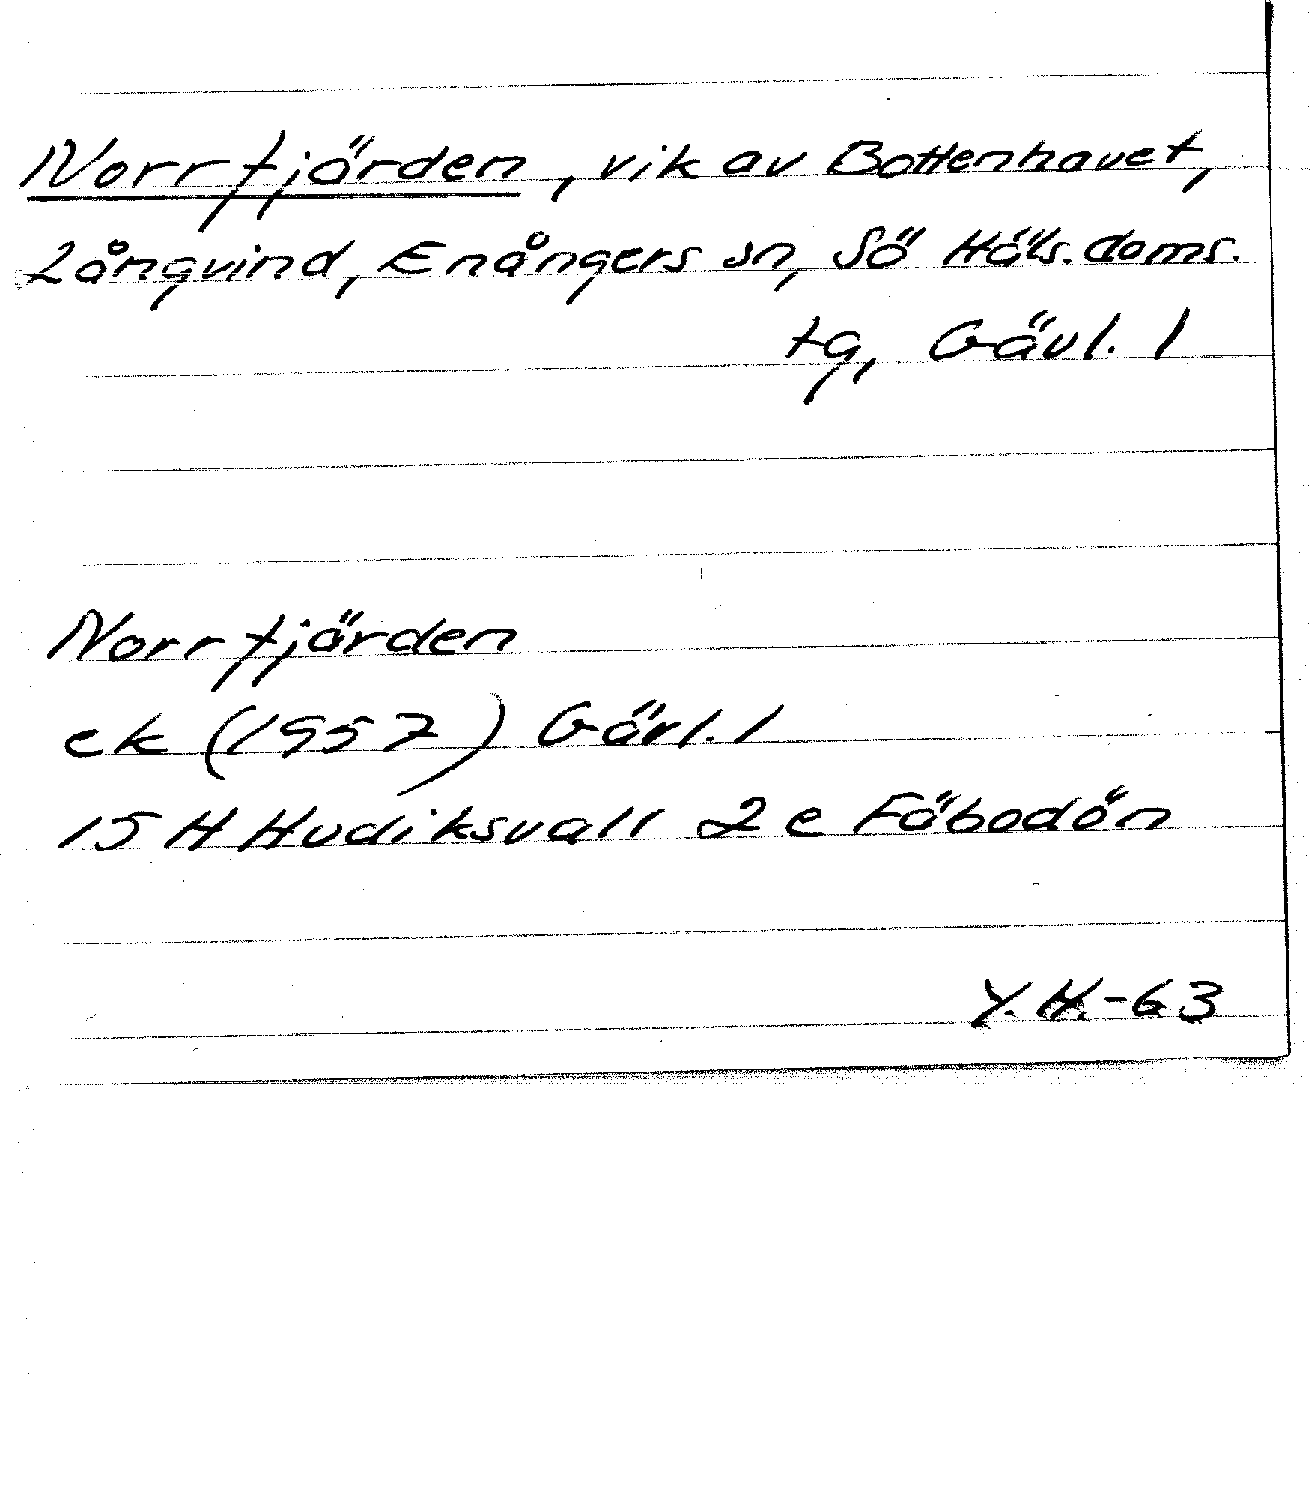 Norrfjärden, vik av Bottenhavet,
Långvind, Enångers sn, Sö Häls. doms.
tg, Gävl. l
Norrfjärden
ek (1957) Gävl. l
15 H Hudiksvall 2 e Fäbodön
Y.H.-63